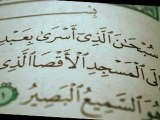 سُبْحَٰنَ ٱلَّذِىٓ أَسْرَىٰ بِعَبْدِ
إِلَى ٱلْمَسْجِدِ ٱلْأَقْصَا ٱلَّذِى
هُوَ ٱلسَّمِيعُ ٱلْبَصِيرُ ١